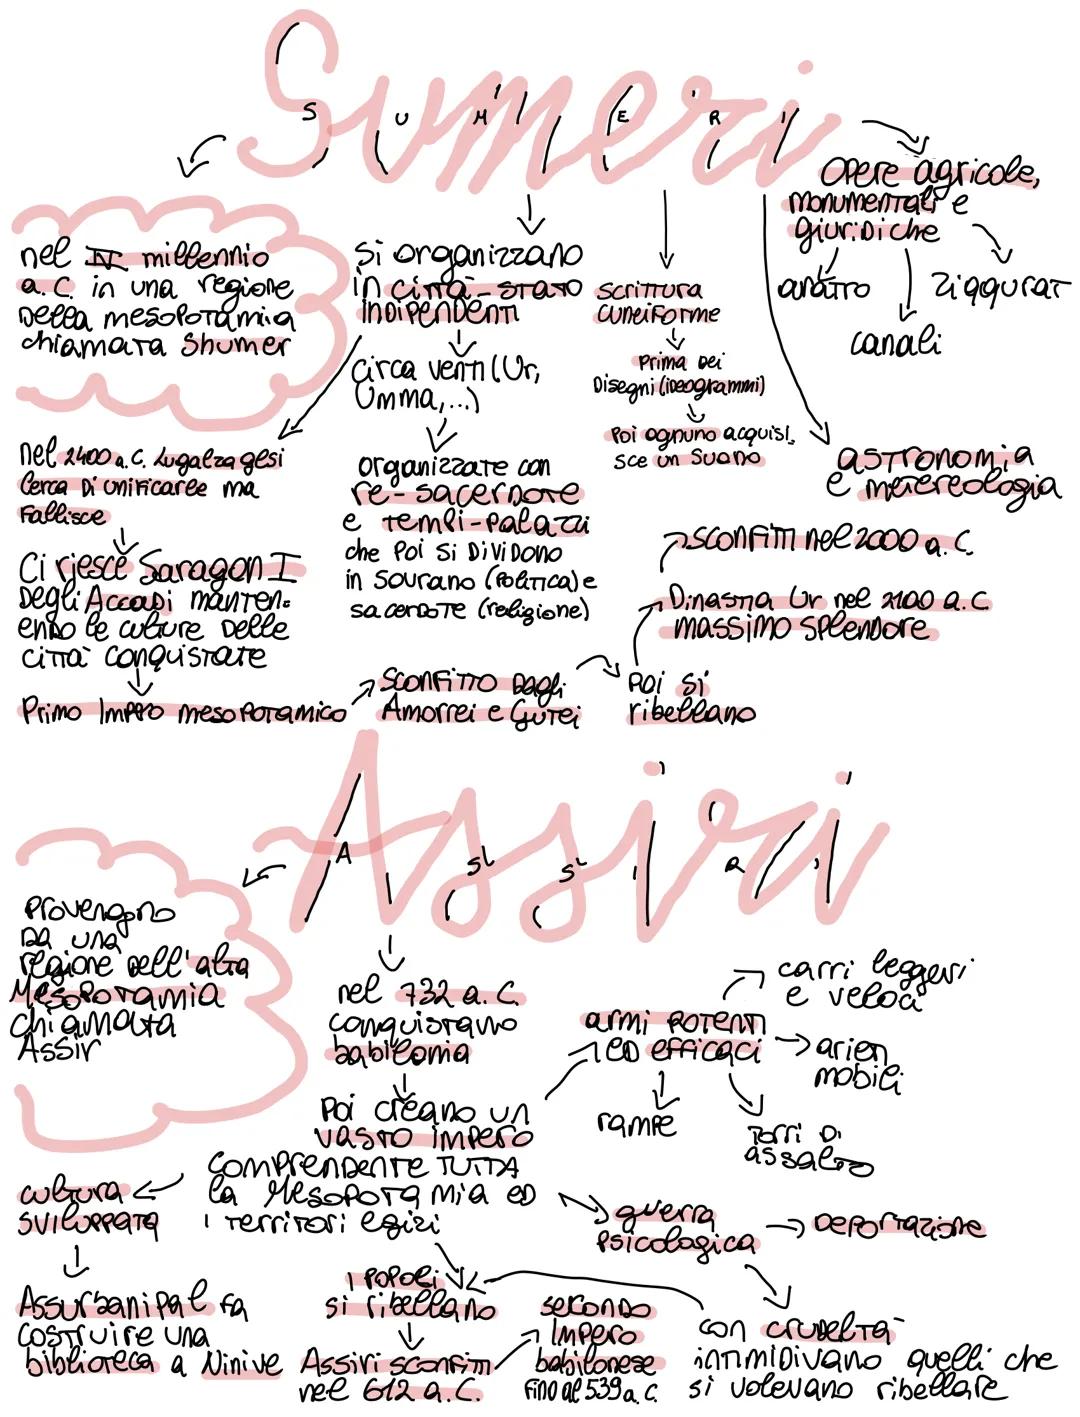 Sumeri
S U M E R I
nel IV millennio
a.C. in una regione
della mesopotamia
chiamata Shumer
si organizzano
in città-stato
indipendenti
circa venti (Ur,
Umma,...)
organizzate con
re-sacerdote
e templi-palazzi
che poi si dividono
in sovrano (politica) e
sacerdote (religione)
scrittura
cuneiforme
prima dei
disegni (ideogrammi)
poi ognuno acquisi
sce un suono
opere agricole,
monumentali e
giuridiche
aratro
canali
ziqqurat
astronomia
e metereologia
nel 2400 a.C. Lugalzagesi
cerca di unificarle ma
fallisce
Ci riesce Saragon I
degli Accadi manten-
endo le culture delle
città conquistate
Primo Impero mesopotamico
sconfitto dagli
Amorrei e Gutei
poi si
ribellano
Dinastia Ur nel 2100 a.C.
massimo splendore
sconfitti nel 2000 a.C.
Assiri
A S S I R I
provengono
da una
regione dell'alta
Mesopotamia
chiamata
Assir
nel 732 a.C.
conquistano
babilonia
poi creano un
vasto impero
comprendente tutta
la Mesopotamia ed
i territori egizi
armi potenti
ed efficaci
carri leggeri
e veloci
arieti
mobili
rampe
torri di
assalto
cultura
sviluppata
Assurbanipal fa
costruire una
biblioteca a Ninive
guerra
psicologica
deportazione
con crudeltà
intimidivano quelli che
si volevano ribellare
i popoli
si ribellano
Assiri sconfitti
nel 612 a.C.
secondo
Impero
babilonese
fino al 539 a.C.